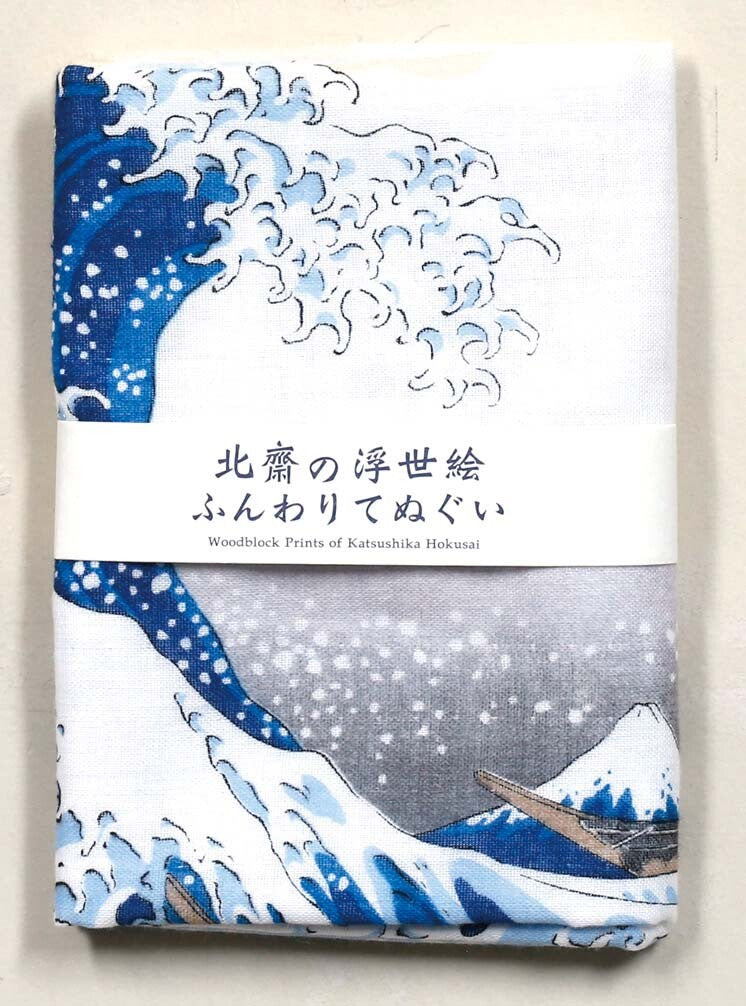 北齋の浮世絵
ふんわりてぬぐい
Woodblock Prints of Katsushika Hokusai